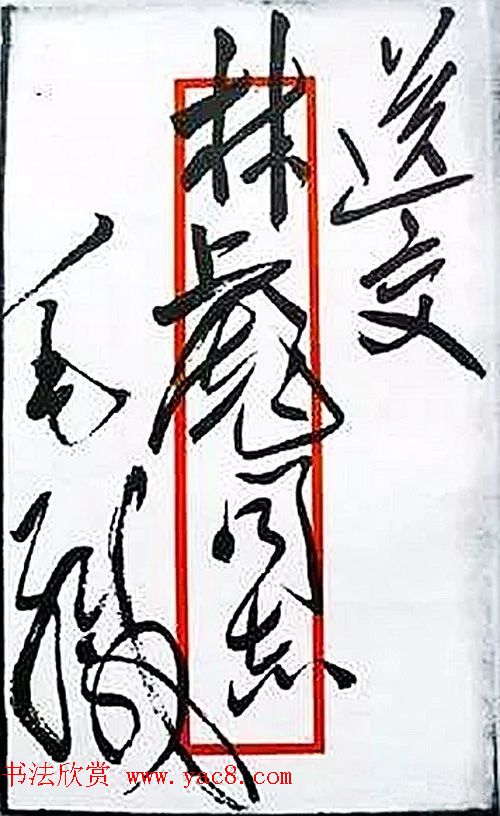 送交
林彪同志
毛缄
书法欣赏 www.yac8.com